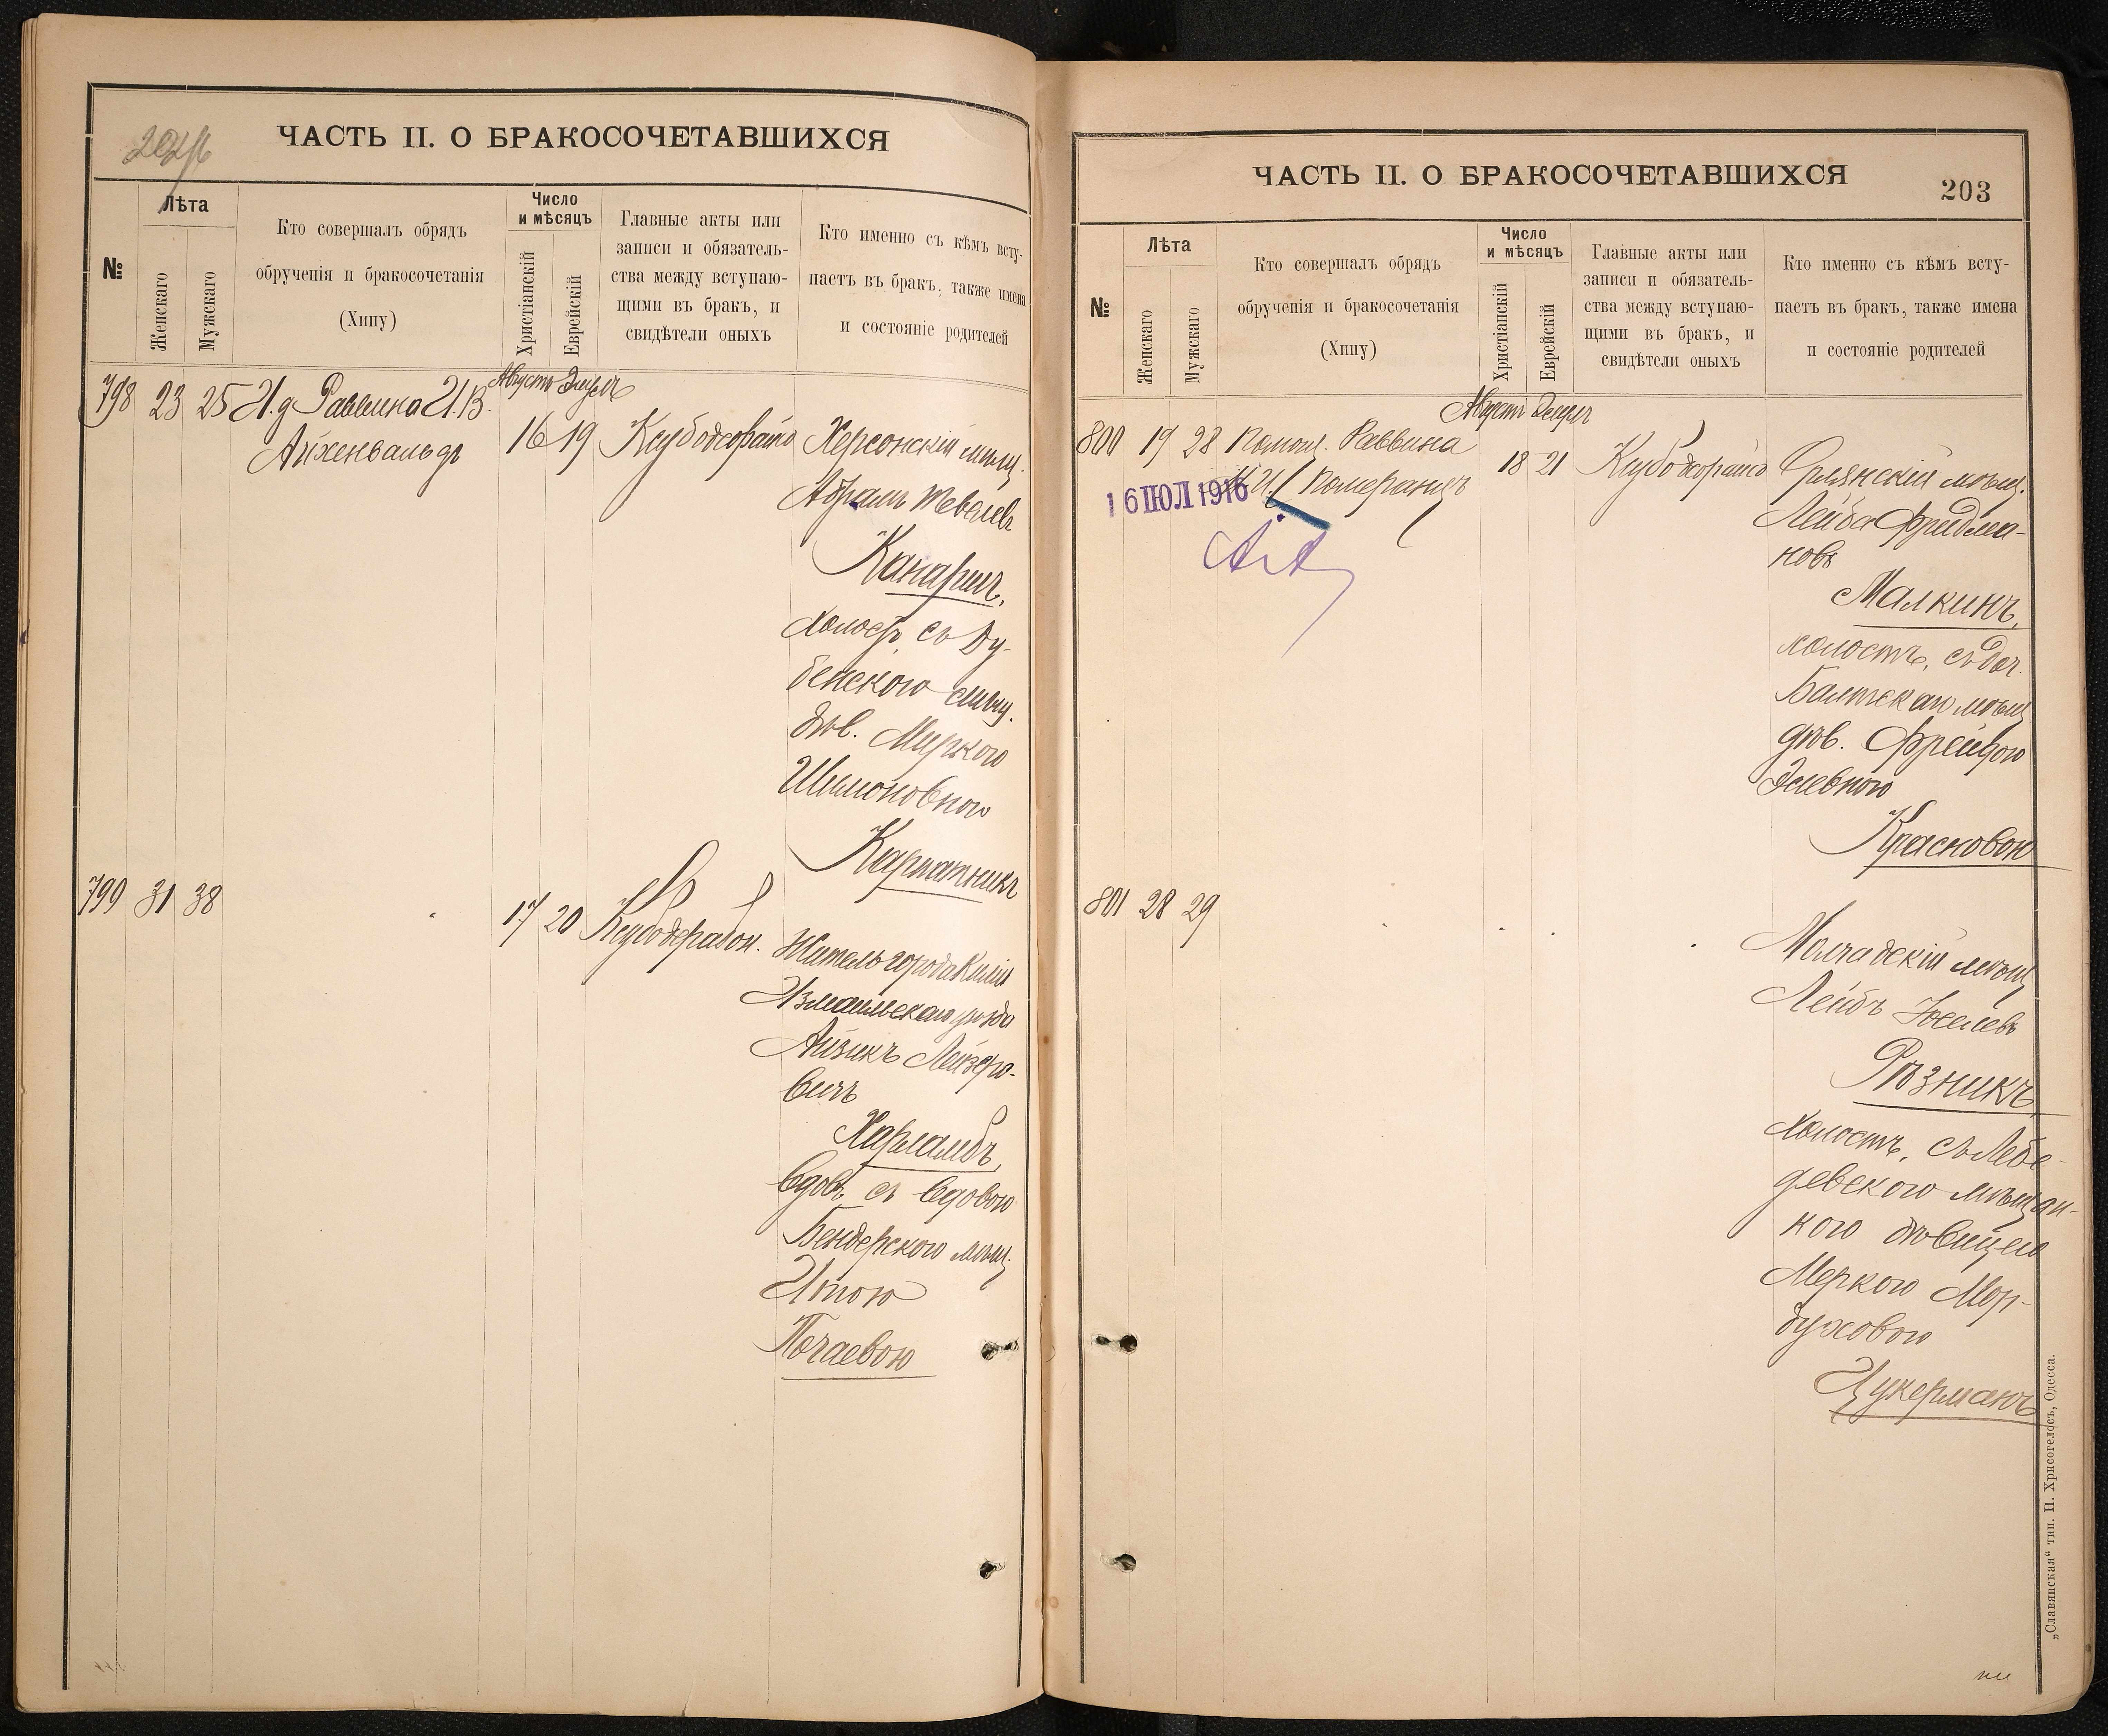 ЧАСТЬ II. О БРАКОСОЧЕТАВШИХСЯ
№
Лѣта
Женскаго
Мужскаго
Кто совершалъ обрядъ
обрученія и бракосочетанія
(Хипу)
Число
и мѣсяцъ
Христіанскій
Еврейскій
Главные акты или
записи и обязатель-
ства между вступаю-
щими въ бракъ, и
свидѣтели оныхъ
Кто именно съ кѣмъ всту-
паетъ въ бракъ, также имена
и состояніе родителей
798 23 25 И.д. Раввина И.В.
Айхенвальдъ
Августъ Элулъ
16 19
Херсонскій мѣщ.
Абрамъ Тевелевъ
Канаричъ,
холостъ, съ Ду-
бенскою мѣщ.
дѣв. Миркою
Шимоновною
Карпатникъ
799 31 38
17 20
Житель города Киліи
Измаильскаго уѣзда
Айзикъ Лейзеро-
вичъ
Харламбъ,
вдов, съ вдовою
Бендерскою мѣщ.
Итою
Почаевою
ЧАСТЬ II. О БРАКОСОЧЕТАВШИХСЯ
203
№
Лѣта
Женскаго
Мужскаго
Кто совершалъ обрядъ
обрученія и бракосочетанія
(Хипу)
Число
и мѣсяцъ
Христіанскій
Еврейскій
Главные акты или
записи и обязатель-
ства между вступаю-
щими въ бракъ, и
свидѣтели оныхъ
Кто именно съ кѣмъ всту-
паетъ въ бракъ, также имена
и состояніе родителей
800 19 28 Помощ. Раввина
Померанцъ
16 ІЮЛ 1916
Августъ Элулъ
18 21
мѣщ.
Лейба Фридма-
новъ
Малкинъ,
холостъ, съ доч.
Балтскаго мѣщ
дѣв. Фрейдою
Элевною
Красновою
801 28 29
Молчадскій мѣщ
Лейбъ Іоселевъ
Рѣзникъ
холостъ, съ Лебе-
девскою мѣщан-
кою дѣвицею
Меркою Мор-
духовою
Цукерманъ
„Славянская“ тип. Н. Хрисогелосъ, Одесса.